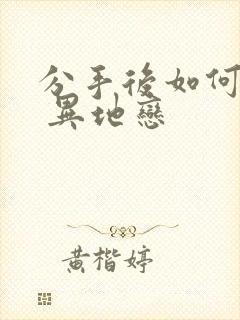 分手後如何
異地戀
黃楷婷